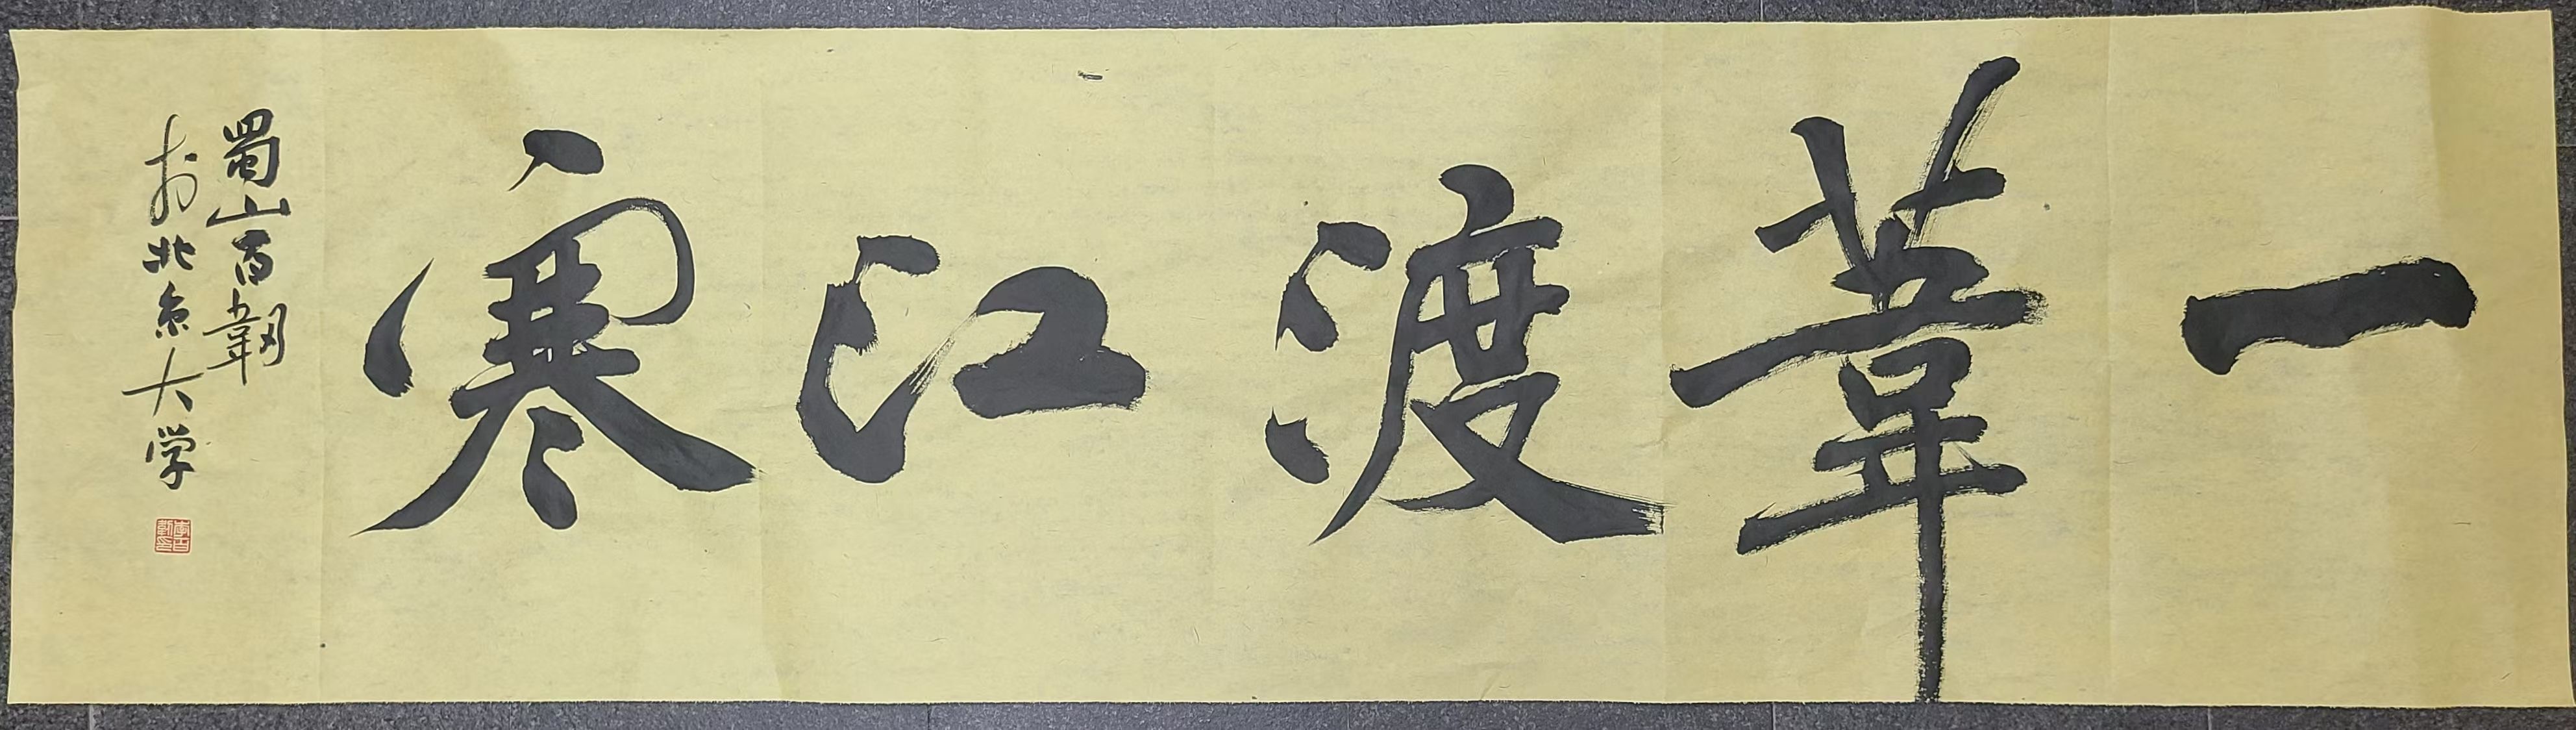 一葦渡江寒
蜀山百韌
於北京大学